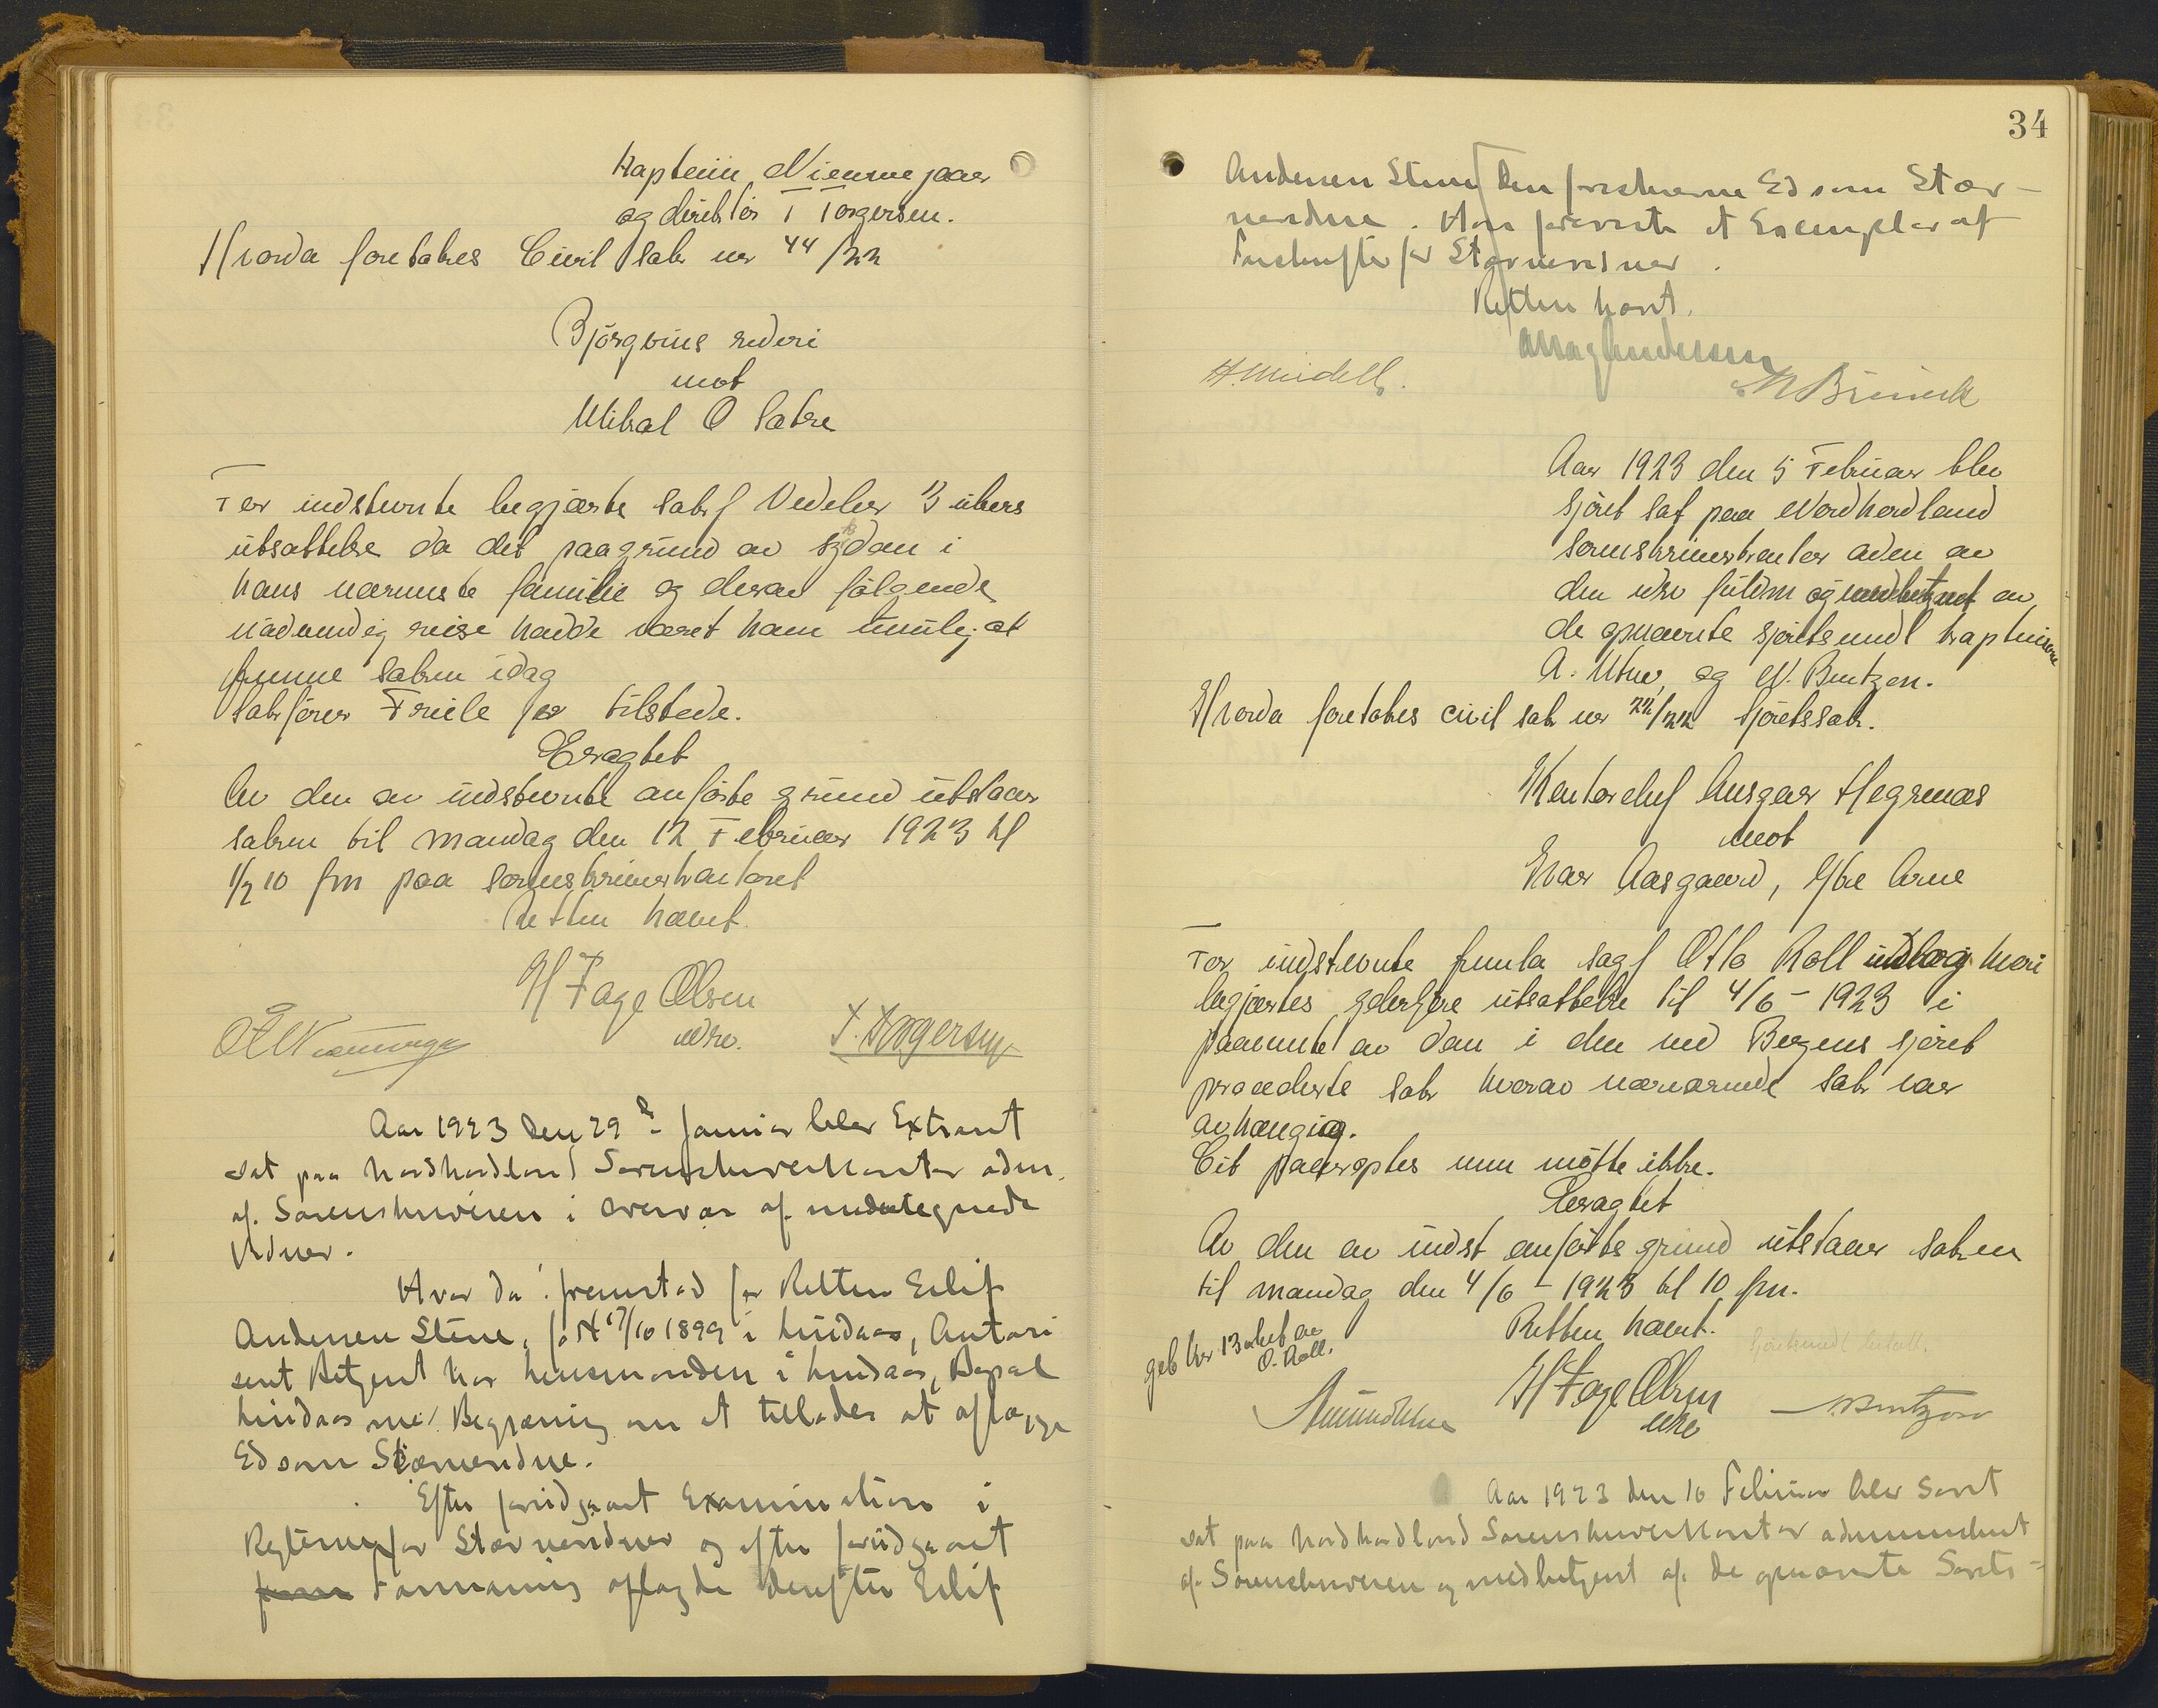 Kaptein Niennepaer
og direktör T Torgersen.
Hvorda foretakes Civil sak nr 44/22
Björgvins rederi
mot
Mikal O Sætre
For indstevnte begjærte sakf Vedeler 3 ukers
utsættelse da det paagrund av sydom i
hans nærmeste familie og derav følgende
nödvendig reise hadde været ham umulig at
fremme saken idag
Sakförer Friele er tilstede.
Eragtet
Av den av indstevnte anförte grund utstaar
saken til mandag den 12 Februar 1923 kl
1/2 10 fm paa sorenskriverkontoret
Retten hævet.
H Fage Olsen
edsv.
T. Torgersen
Aar 1923 den 29de Januar blev Extraret
sat paa Nordhordland Sorenskriverkontor adm.
af Sorenskriveren i overvær af undertegnede
Vidner.
Hvor da: fremstod for Retten Eilif
Andersen Stene, født 17/10 1899 i Lindaas, Autori
sert Betjent hos lensmanden i Lindaas, Bopæl
Lindaas med Begjæring om at tillades at aflægge
Ed som Stævnevidne.
Efter foreidgaaet Examination i
Reglerne for Stævnevidner og efter foreidgaaet
Formaning aflagde derefter Eilif
34
Andersen Stene den foreskrevne Ed som Stæv-
nevidne. Han foreviste et Exemplar af
Forskrifter for Stævnevidner.
Retten hævet.
Mag Andersen
H. Meidell.
Aar 1923 den 5 Februar blev
sjöret sat paa Nordhordland
sorenskriverkontor adm av
den edsv fuldm og medbetjent av
de opnævnte sjöretsmedl kapteinene
A. Utne, og N. Bentzon.
Hvorda foretakes civil sak nr 22/22 Sjöretssak.
Kontorchef Ansgar Hegrenæs
mot
Ivar Aasgaard, Ytre Arne
For indstevnte fremla sagf Otto Roll indlæg hvori
begjærtes yderligere utsættelse til 4/6 - 1923 i
paavente av dom i den ved Bergens sjöret
procederte sak hvorav nærværende sak var
avhængig.
Cit paaroptes men mötte ikke.
Eragtet
Av den av indst anförte grund utstaar saken
til mandag den 4/6 - 1923 kl 10 fm.
Retten hævet.
geb kr 13 bet av
O. Roll.
H Fage Olsen
edsv
N Bentzon
Aar 1923 den 16 Februar blev Søret
sat paa Nordhordland Sorenskriverkontor administrert
af Sorenskriveren og medbetjent af de opnævnte Sørets-